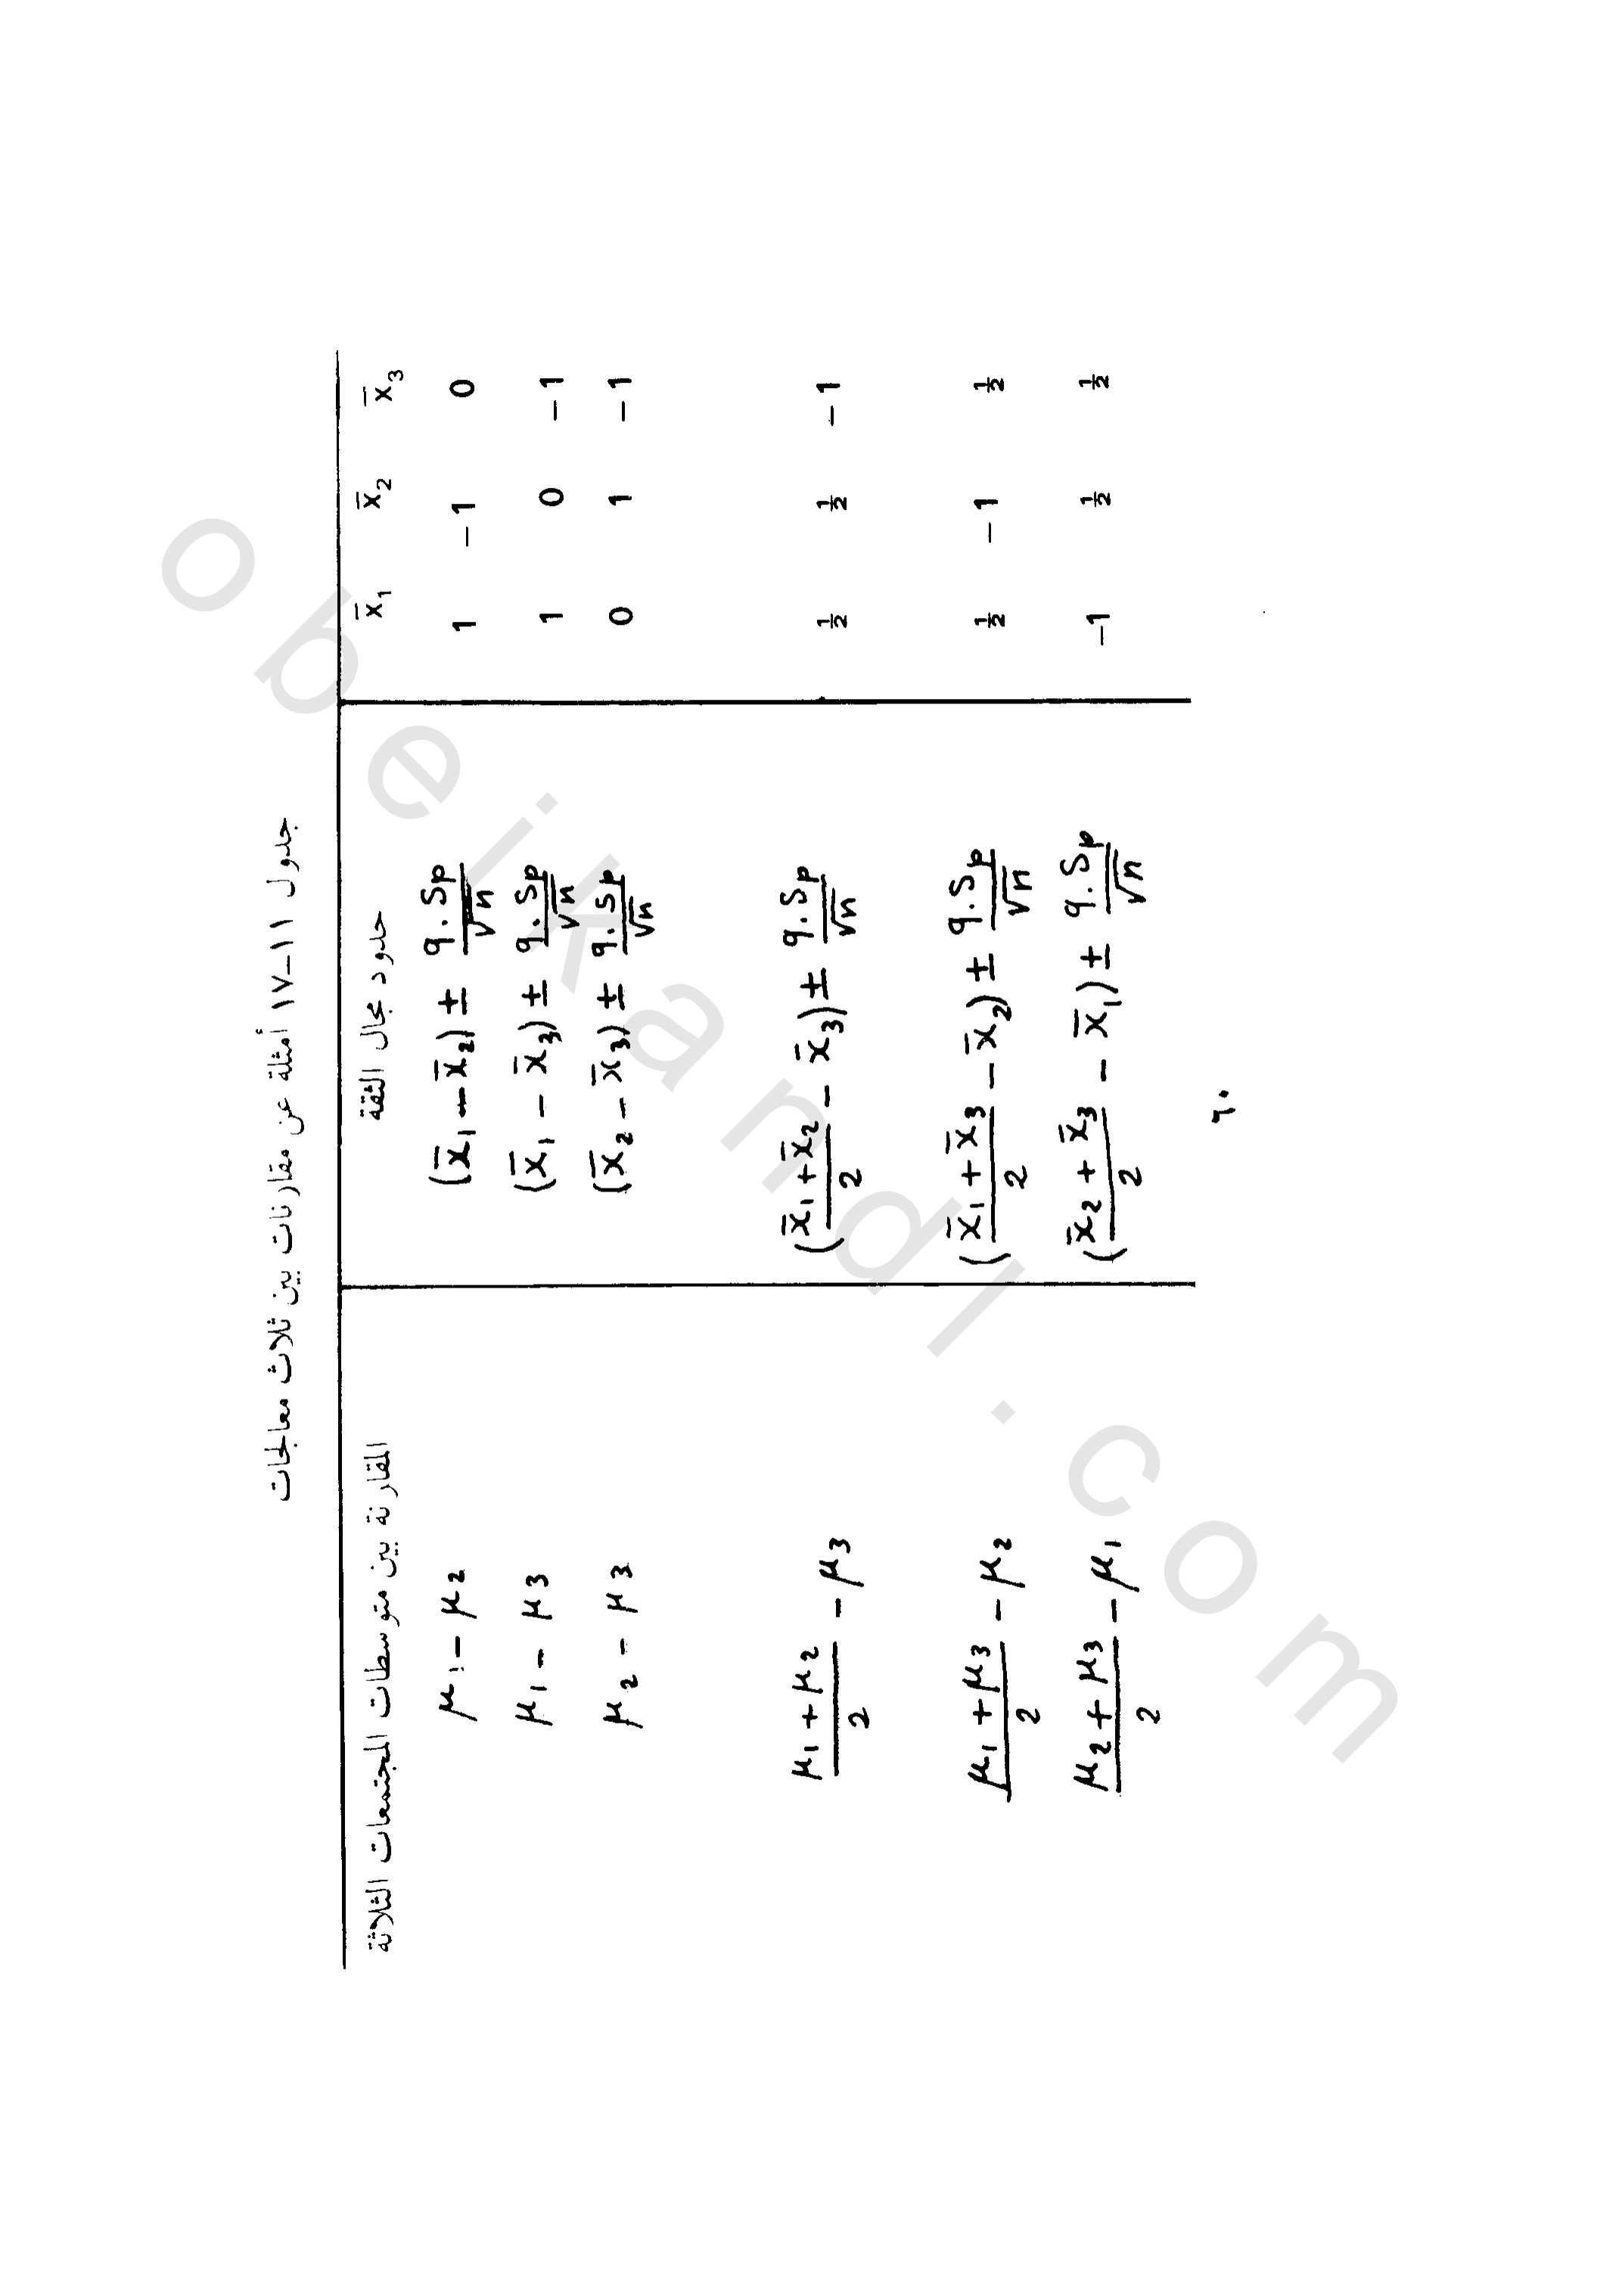 جدول ١١-١٧ أمثلة عن مقارنات بين ثلاث معالجات
المقارنة بين متوسطات المجتمعات الثلاثة | حدود مجال الثقة | x̄₁ x̄₂ x̄₃
μ₁ − μ₂ | (x̄₁ − x̄₂) ± q.Sp/√n | 1 −1 0
μ₁ − μ₃ | (x̄₁ − x̄₃) ± q.Sp/√n | 1 0 −1
μ₂ − μ₃ | (x̄₂ − x̄₃) ± q.Sp/√n | 0 1 −1
(μ₁ + μ₂)/2 − μ₃ | ((x̄₁ + x̄₂)/2 − x̄₃) ± q.Sp/√n | ½ ½ −1
(μ₁ + μ₃)/2 − μ₂ | ((x̄₁ + x̄₃)/2 − x̄₂) ± q.Sp/√n | ½ −1 ½
(μ₂ + μ₃)/2 − μ₁ | ((x̄₂ + x̄₃)/2 − x̄₁) ± q.Sp/√n | −1 ½ ½
٦٠
obeikandl.com